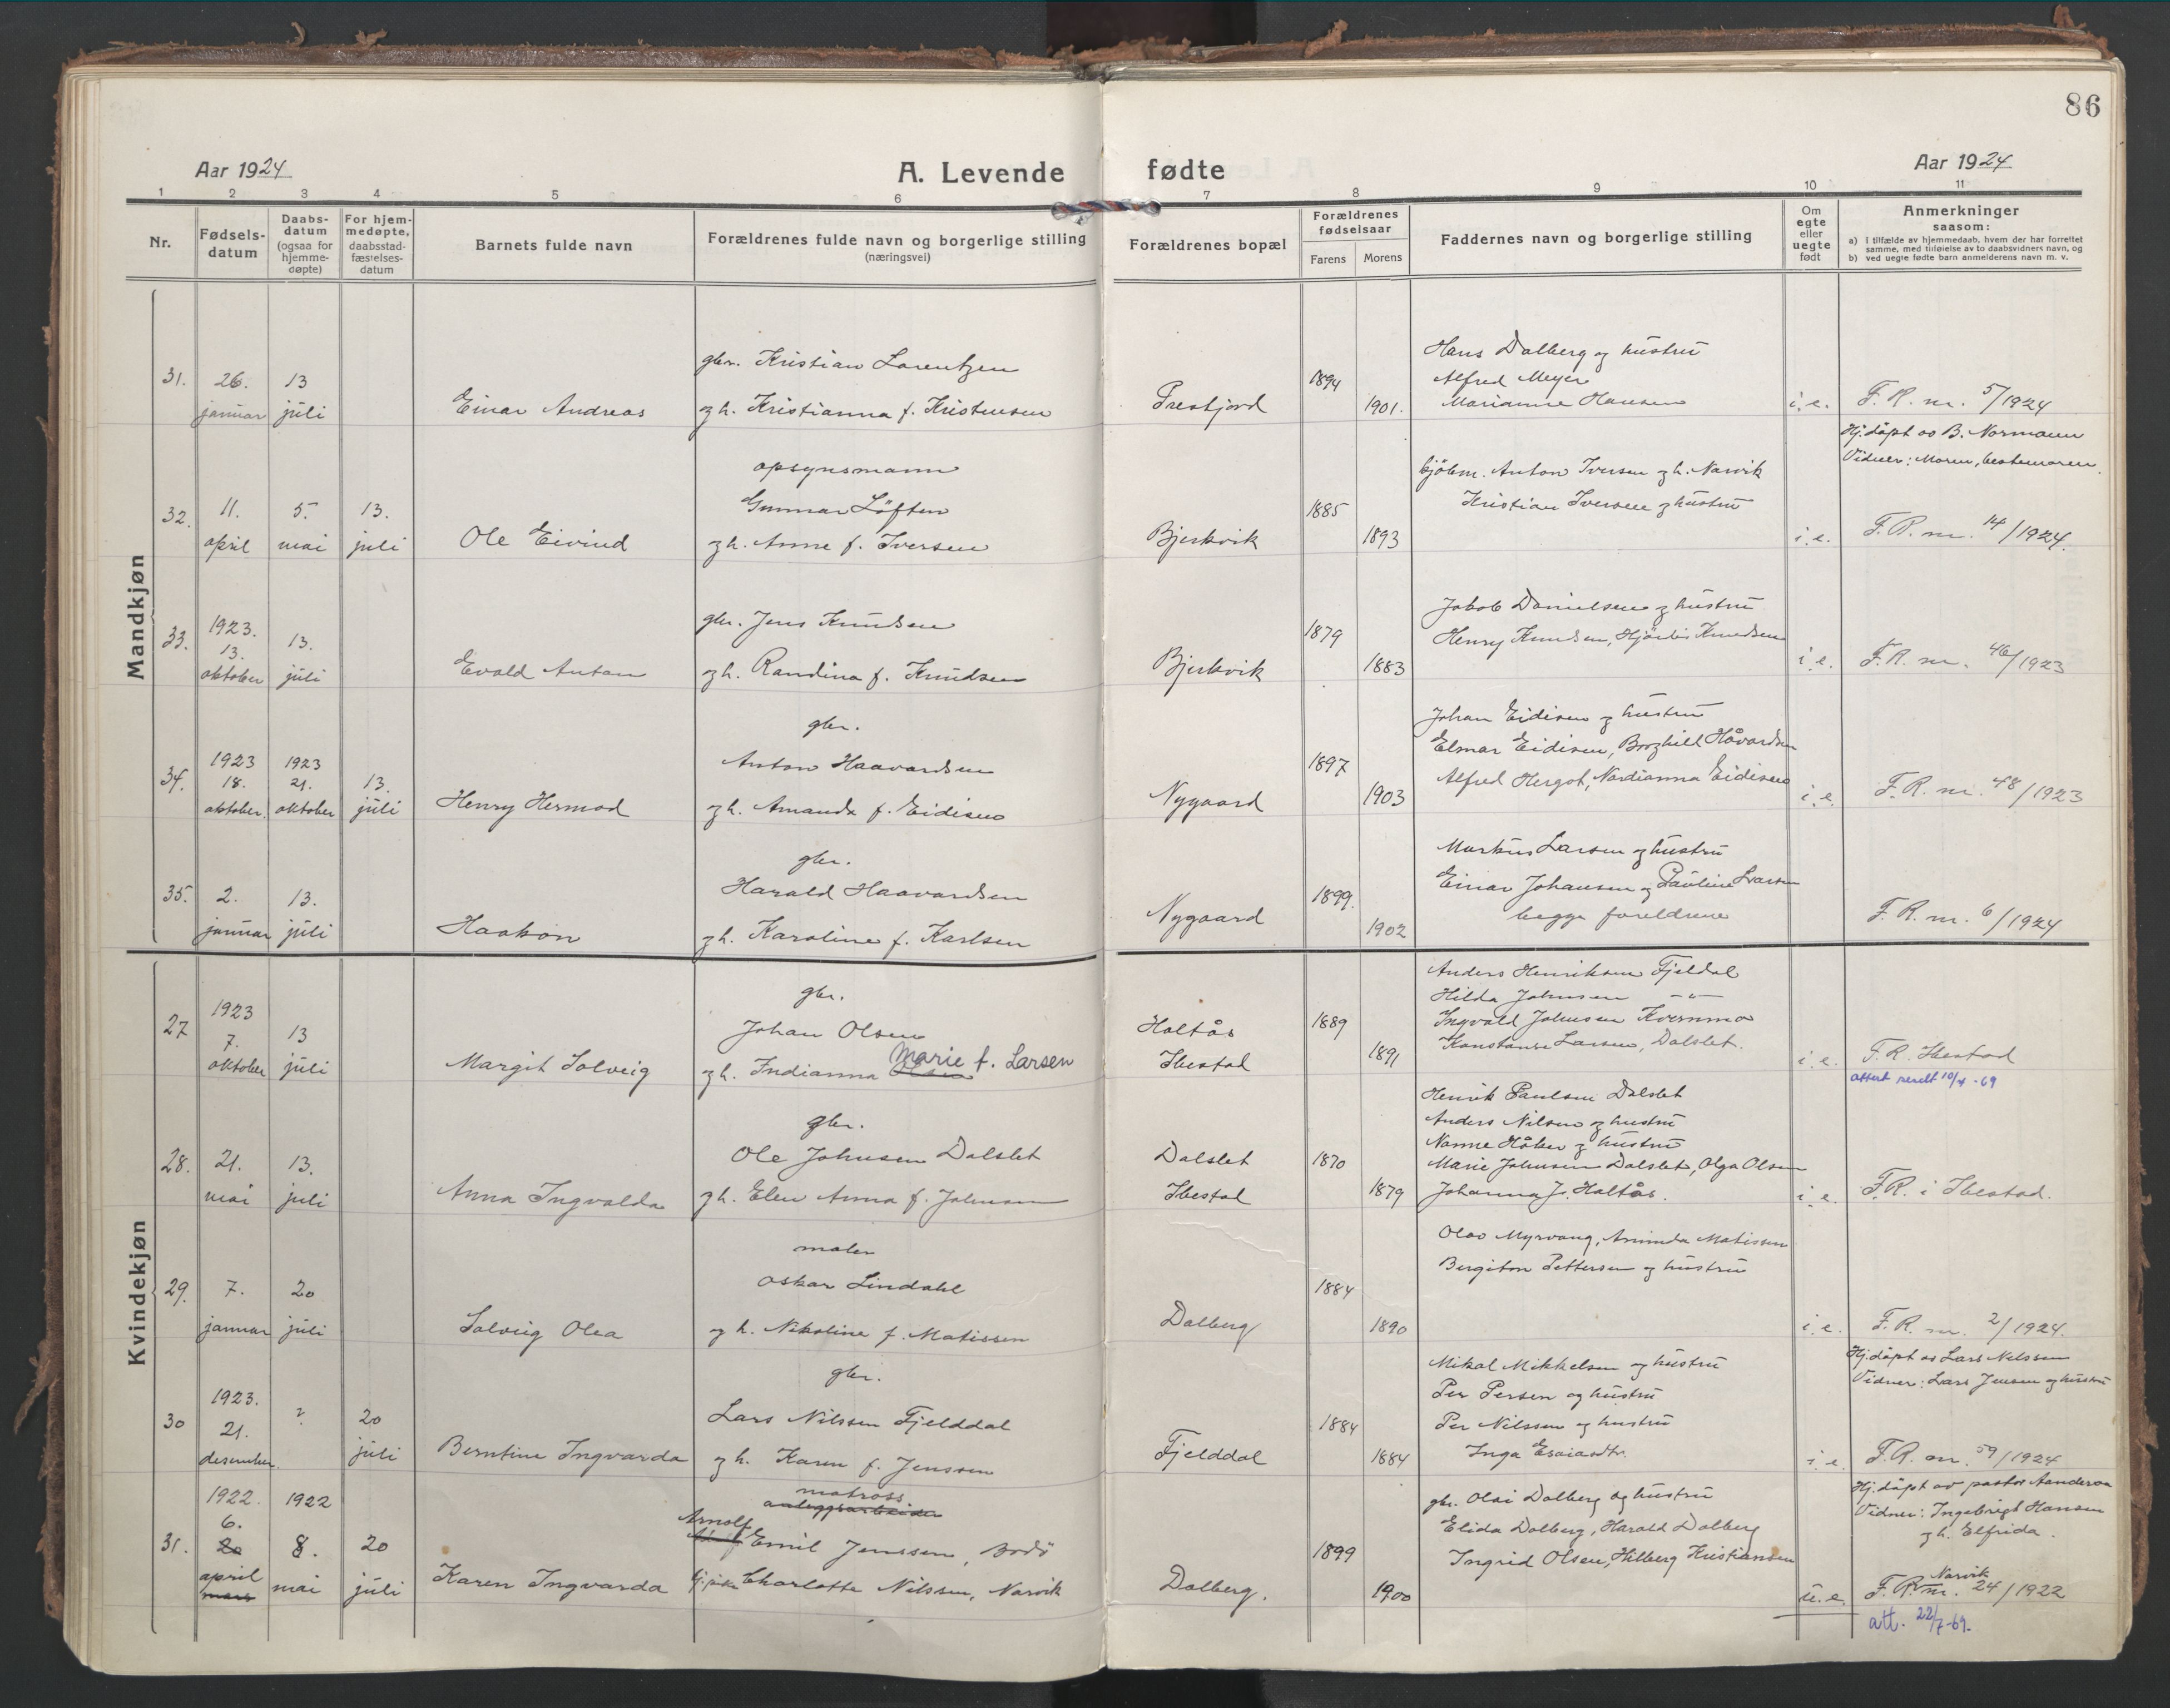 86
Aar 1924
A. Levende fødte
Aar 1924
1 2 3 4 5 6 7 8 9 10 11
Nr.
Fødsels-
datum
Daabs-
datum
(ogsaa for
hjemme-
døpte)
For hjem-
medøpte,
daabsstad-
fæstelses-
datum
Barnets fulde navn
Forældrenes fulde navn og borgerlige stilling
(næringsvei)
Forældrenes bopæl
Forældrenes
fødselsaar
Farens Morens
Faddernes navn og borgerlige stilling
Om
egte
eller
uegte
født
Anmerkninger
saasom:
a) i tilfælde av hjemmedaab, hvem der har forrettet
samme, med tilføielse av to daabsvidners navn, og
b) ved uegte fødte barn anmelderens navn m. v.
Mandkjøn
31.
26.
januar
13
juli
Einar Andreas
gbr. Kristian Lorentzen
og h. Kristianna f. Kristensen
Presfjord
1894
1901.
Hans Dalberg og hustru
Alfred Meyer
Marianne Hansen
i. e.
F. R. nr. 5/1924
32.
11.
april
5.
mai
13.
juli
Ole Eivind
opsynsmann
Gunnar Løften
og h. Anne f. Iversen
Bjerkvik
1885
1893
Anton Iversen og h. Narvik
Kristian Iversen og hustru
i. e.
Hj. døpt av B. Normann
Vidner: Moren, bestemoren.
F. R. nr. 14/1924.
33.
1923.
13.
oktober
13.
juli
Evald Anton
gbr. Jens Knudsen
og h. Randina f. Knudsen
Bjerkvik
1879
1883
Jakob Danielsen og hustru
Henry Knudsen, Hjördis Knudsen
i. e.
F. R. nr. 46/1923
34.
1923
18.
oktober.
1923
21.
oktober
13.
juli
Henry Hermod
gbr.
Anton Haavardsen
og h. Amanda f. Eidisen
Nygaard
1897
1903
Johan Eidisen og hustru
Elmar Eidisen, Borghild Håvardsen
Alfred Hergot, Nordianna Eidisen
i. e.
F. R. nr. 48/1923
35.
2.
januar
13.
juli
Haakon
gbr.
Harald Haavardsen
og h. Karoline f. Karlsen
Nygaard
1899.
1902
Markus Larsen og hustru
Einar Johansen og Pauline Larsen
begge foreldrene
F. R. nr. 6/1924
Kvindekjøn
27
1923
7.
oktober
13
juli
Margit Solveig
gbr.
Johan Olsen
og h. Indianna Olsen Marie f. Larsen
Holtås
Ibestad
1889
1891
Anders Henriksen Fjeldal
Hilda Johnsen -"-
Ingvald Johnsen Kvernmo
Konstanse Larsen, Dalslet.
i. e.
F. R. Ibestad
attest sendt 10/4 -69
28.
21.
mai
13.
juli
Anna Ingvalda
gbr.
Ole Johnsen Dalslet
og h. Elen Anna f. Johnsen
Dalslet
Ibestad
1870
1879
Henrik Paulsen Dalslet
Anders Nilsen og hustru
Nanne Håker og hustru
Marie Johnsen Dalslet, Olga Olsen
Johanna J. Holtås.
i e.
F. R. i Ibestad.
29.
7.
januar
20
juli
Solveig Olea
maler
Oskar Lindahl
og h. Nikoline f. Matissen
Dalberg
1884
1890
Olav Myrvang, Aminda Matissen
Bergiton Pettersen og hustru
i. e.
F. R. nr. 2/1924.
30
1923.
21.
desember.
?
20
juli
Berntine Ingvarda
gbr.
Lars Nilssen Fjelddal
og h. Karen f. Jenssen
Fjelddal
1884
1884
Mikal Mikkelsen og hustru
Per Persen og hustru
Per Nilssen og hustru
Inga Esaiasdtr.
i. e.
Hj. døpt av Lars Nilssen
Vidner: Lars Jensen og hustru
F. R. nr. 59/1924
31.
1922.
6.
20
april
mars
1922
8.
mai
20
juli
Karen Ingvarda
matros
anleggsarbeider
Arnolf
Emil Jenssen, Bodö
Charlotte Nilssen, Narvik
Dalberg.
1899
1900
gbr. Olai Dalberg og hustru
Elida Dalberg, Harald Dalberg
Ingrid Olsen, Hilberg Kristiansen
u. e.
Hj. døpt av pastor Aanderaa
Vidner: Ingebrigt Hansen
og h. Elfrida.
Narvik
F. R. nr. 24/1922
att. 22/7-69.